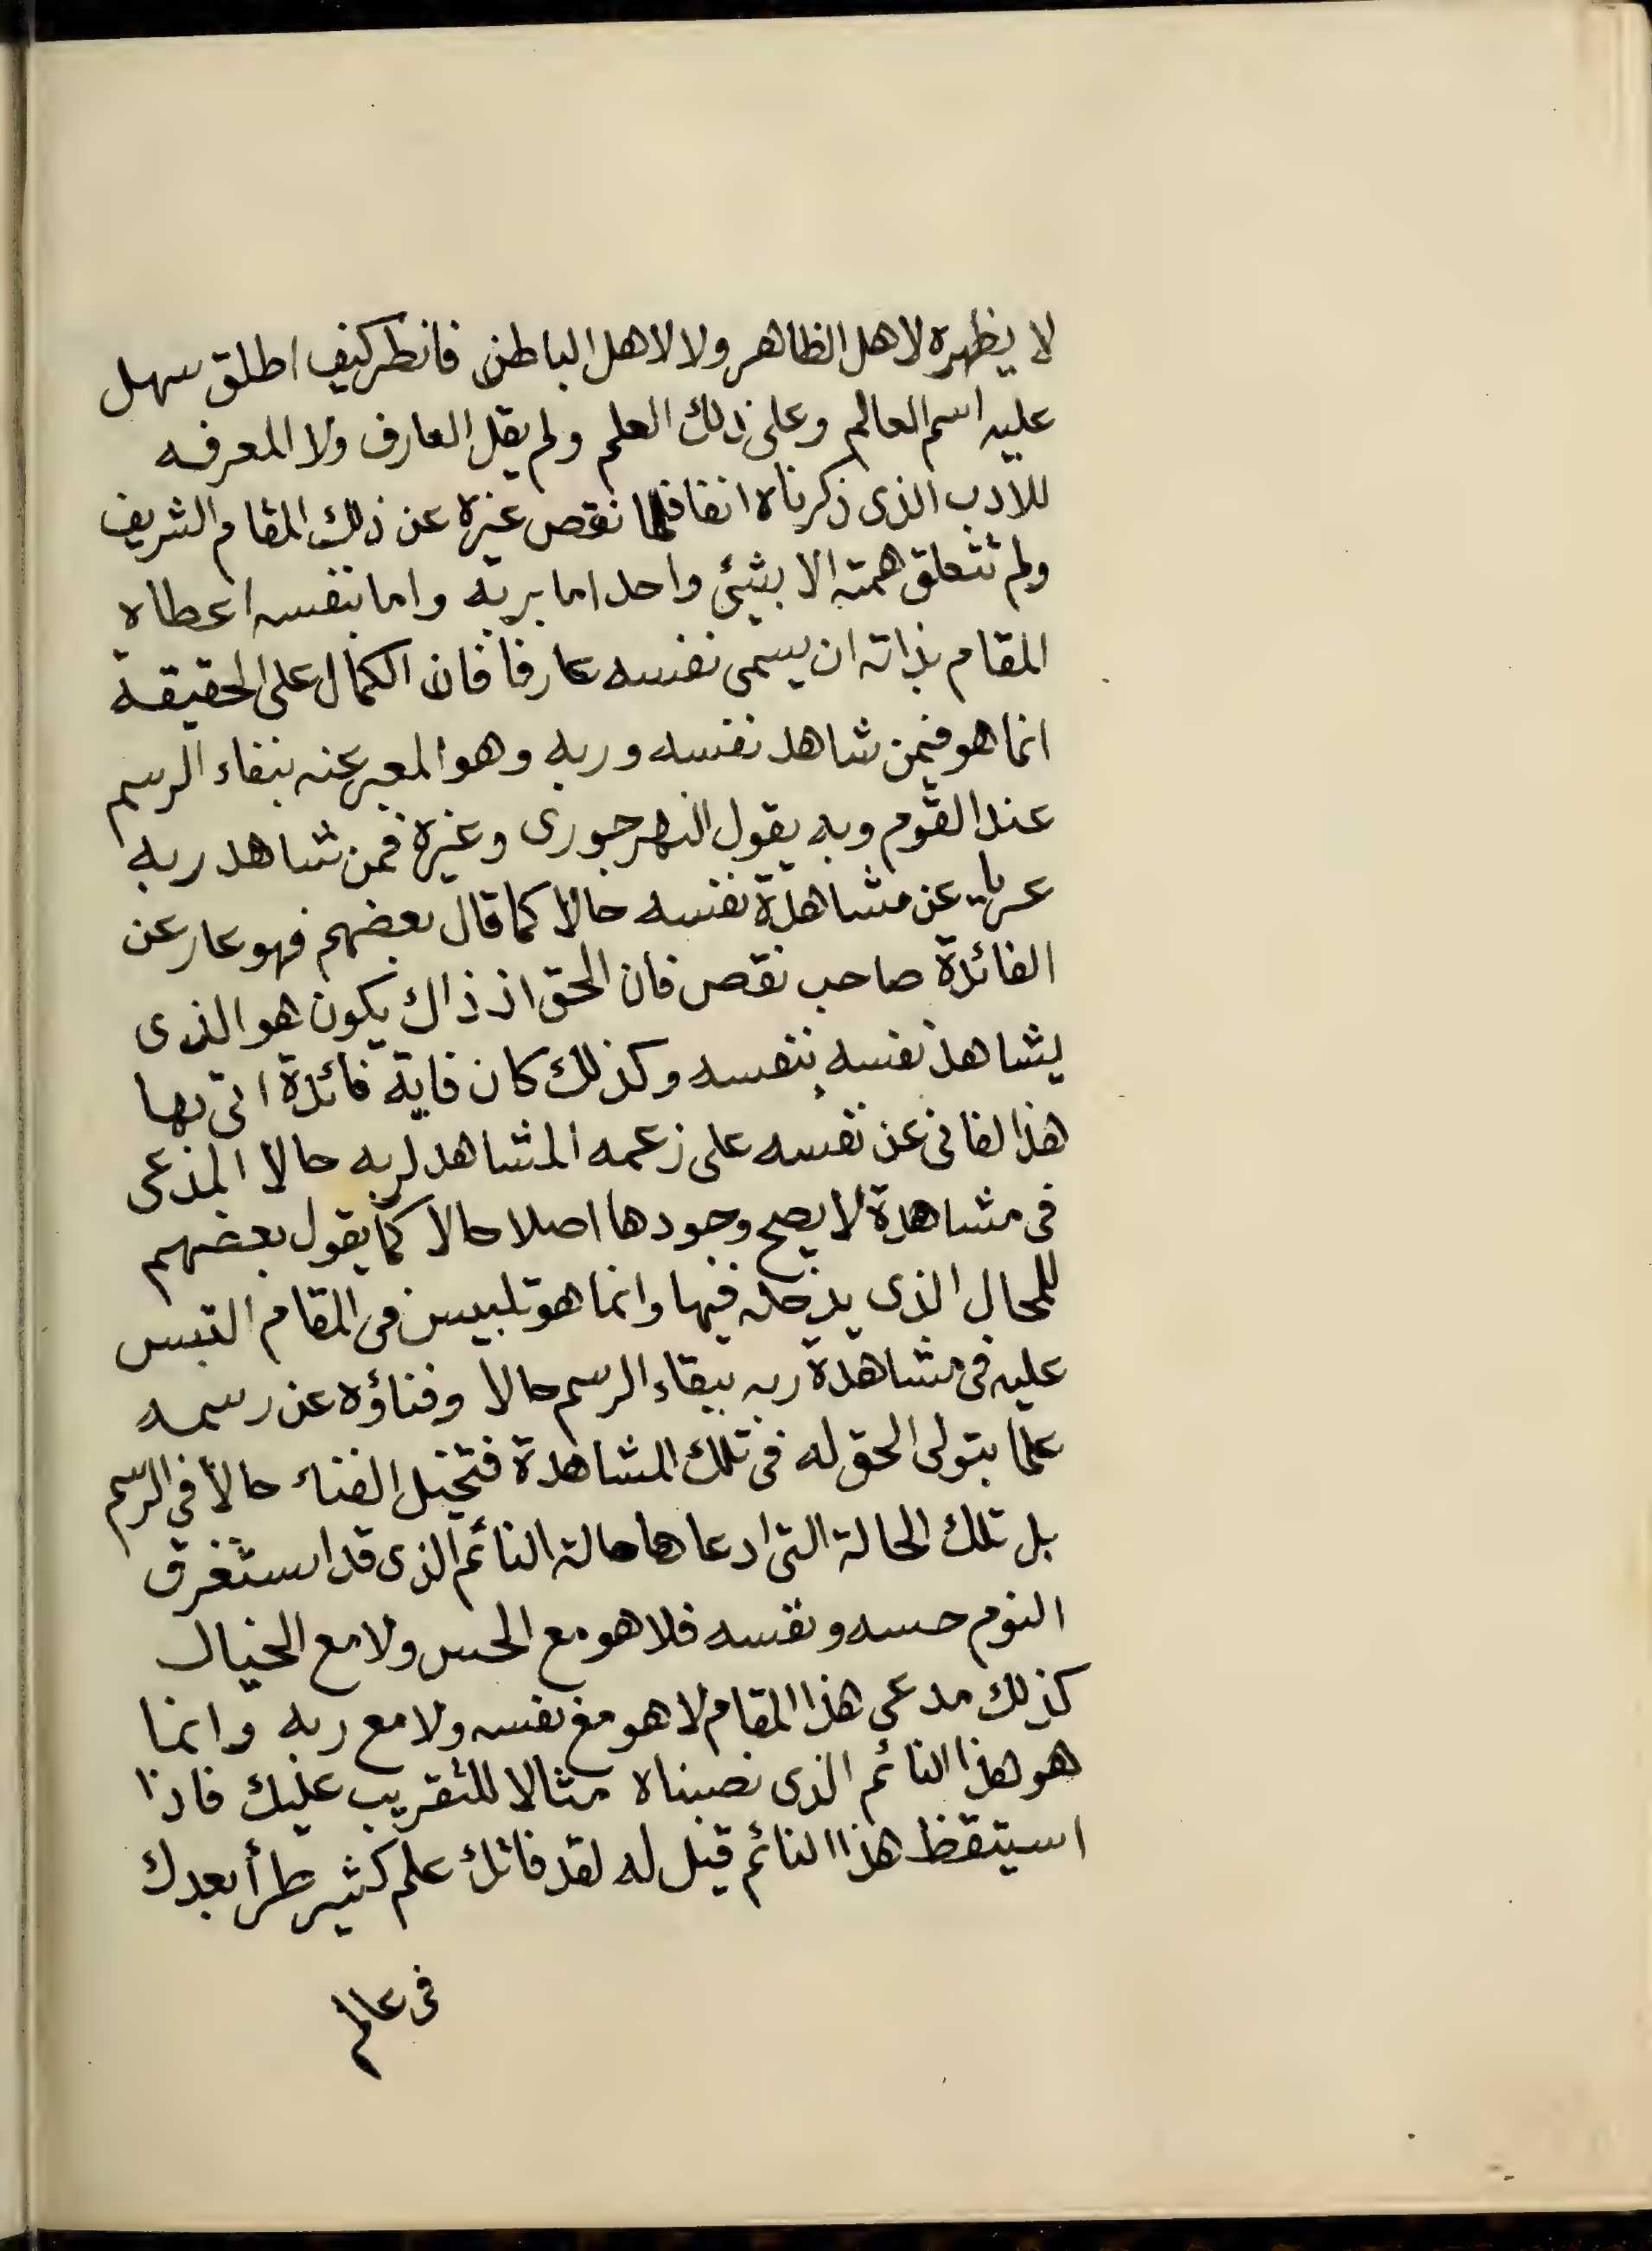 لا يظهره لاهل الظاهر ولا لاهل الباطن فانظر كيف اطلق سهل
عليه اسم العالم وعلى ذلك العلم ولم يقل العارف ولا المعرفه
للادب الذى ذكرناه انفا فلما نقص غيره عن ذلك المقام الشريف
ولم تتعلق همته الا بشئ واحد اما بربه واما بنفسه اعطاه
المقام بذاته ان يسمى نفسه عارفا فان الكمال على الحقيقة
انما هو فيمن شاهد نفسه وربه وهو المعبر عنه ببقاء الرسم
عند القوم وبه يقول النهرجورى وغيره فمن شاهد ربه
عريا عن مشاهدة نفسه حالا كما قال بعضهم فهو عار عن
الفائدة صاحب نقص فان الحق اذ ذاك يكون هو الذى
يشاهد نفسه بنفسه وكذلك كان فاية فائدة اتى بها
هذا لفانى عن نفسه على زعمه المشاهد لربه حالا المدعى
فى مشاهدة لا يصح وجودها اصلا حالا كما يقول بعضهم
للمحال الذى يدخله فيها وانما هو تلبيس فى المقام التبس
عليه فى مشاهدة ربه ببقاء الرسم حالا وفناؤه عن رسمه
علما بتولى الحق له فى تلك المشاهدة فتخيل الفناء حالا فى الرسم
بل تلك الحالة التى ادعاها حالة النائم الذى قد استغرق
النوم حسه ونفسه فلا هو مع الحس ولا مع الخيال
كذلك مدعى هذا المقام لا هو مع نفسه ولا مع ربه وانما
هو لهذا النائم الذى نصبناه مثالا للتقريب عليك فاذا
استيقظ هذا النائم قيل له لقد فاتك علم كثير طرأ بعدك
فى عالم